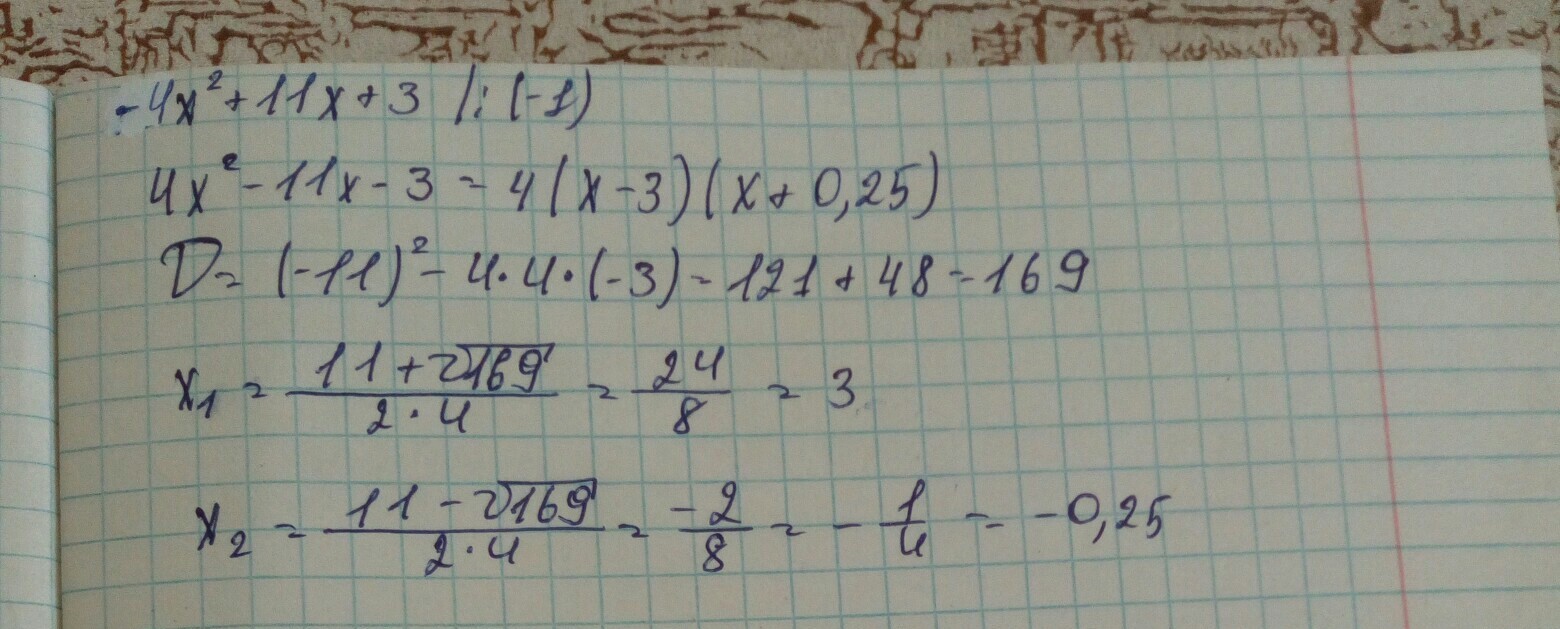 -4x²+11x+3 |:(-1)
4x²-11x-3=4(x-3)(x+0,25)
D=(-11)²-4·4·(-3)=121+48=169
x₁=(11+√169)/(2·4)=24/8=3
x₂=(11-√169)/(2·4)=-2/8=-1/4=-0,25